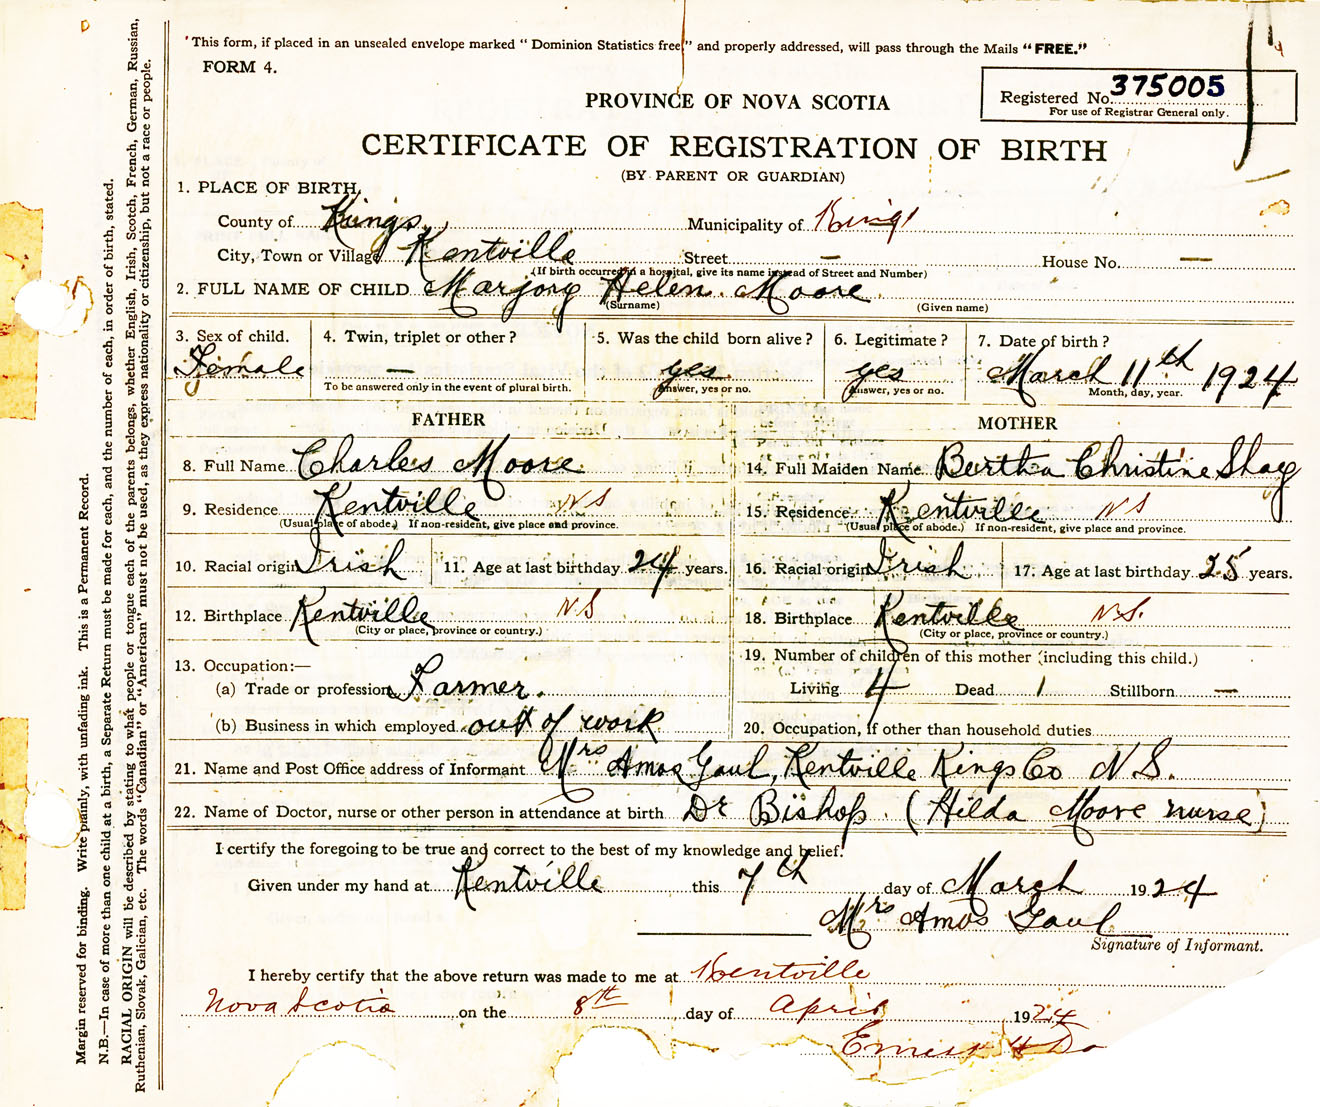 'This form, if placed in an unsealed envelope marked "Dominion Statistics free" and properly addressed, will pass through the Mails "FREE."
FORM 4.
Registered No. 375005
For use of Registrar General only.
PROVINCE OF NOVA SCOTIA
CERTIFICATE OF REGISTRATION OF BIRTH
(BY PARENT OR GUARDIAN)
1. PLACE OF BIRTH,
County of Kings, Municipality of Kings
City, Town or Village Kentville Street — House No. —
(If birth occurred in a hospital, give its name instead of Street and Number)
2. FULL NAME OF CHILD Marjory Helen. Moore
(Surname) (Given name)
3. Sex of child. 4. Twin, triplet or other? 5. Was the child born alive? 6. Legitimate? 7. Date of birth?
Female — yes. yes March 11th 1924
To be answered only in the event of plural birth. Answer, yes or no. Answer, yes or no. Month, day, year.
FATHER MOTHER
8. Full Name Charles Moore 14. Full Maiden Name Bertha Christine Shay
9. Residence Kentville NS 15. Residence Kentville NS
(Usual place of abode.) If non-resident, give place and province. (Usual place of abode.) If non-resident, give place and province.
10. Racial origin Irish 11. Age at last birthday 24 years. 16. Racial origin Irish 17. Age at last birthday 25 years.
12. Birthplace Kentville N.S 18. Birthplace Kentville N.S.
(City or place, province or country.) (City or place, province or country.)
13. Occupation:— 19. Number of children of this mother (including this child.)
(a) Trade or profession Farmer. Living 4 Dead 1 Stillborn —
(b) Business in which employed out of work 20. Occupation, if other than household duties
21. Name and Post Office address of Informant Mrs Amos Gaul, Kentville Kings Co N.S.
22. Name of Doctor, nurse or other person in attendance at birth Dr Bishop. (Hilda Moore nurse)
I certify the foregoing to be true and correct to the best of my knowledge and belief.
Given under my hand at Kentville this 7th day of March 1924
Mrs Amos Gaul
Signature of Informant.
I hereby certify that the above return was made to me at Kentville
Nova Scotia on the 8th day of April 1924
Ernest H
Margin reserved for binding. Write plainly, with unfading ink. This is a Permanent Record.
N.B.—In case of more than one child at a birth, a Separate Return must be made for each, and the number of each, in order of birth, stated.
RACIAL ORIGIN will be described by stating to what people or tongue each of the parents belongs, whether English, Irish, Scotch, French, German, Russian,
Ruthenian, Slovak, Galician, etc. The words "Canadian" or "American" must not be used, as they express nationality or citizenship, but not a race or people.